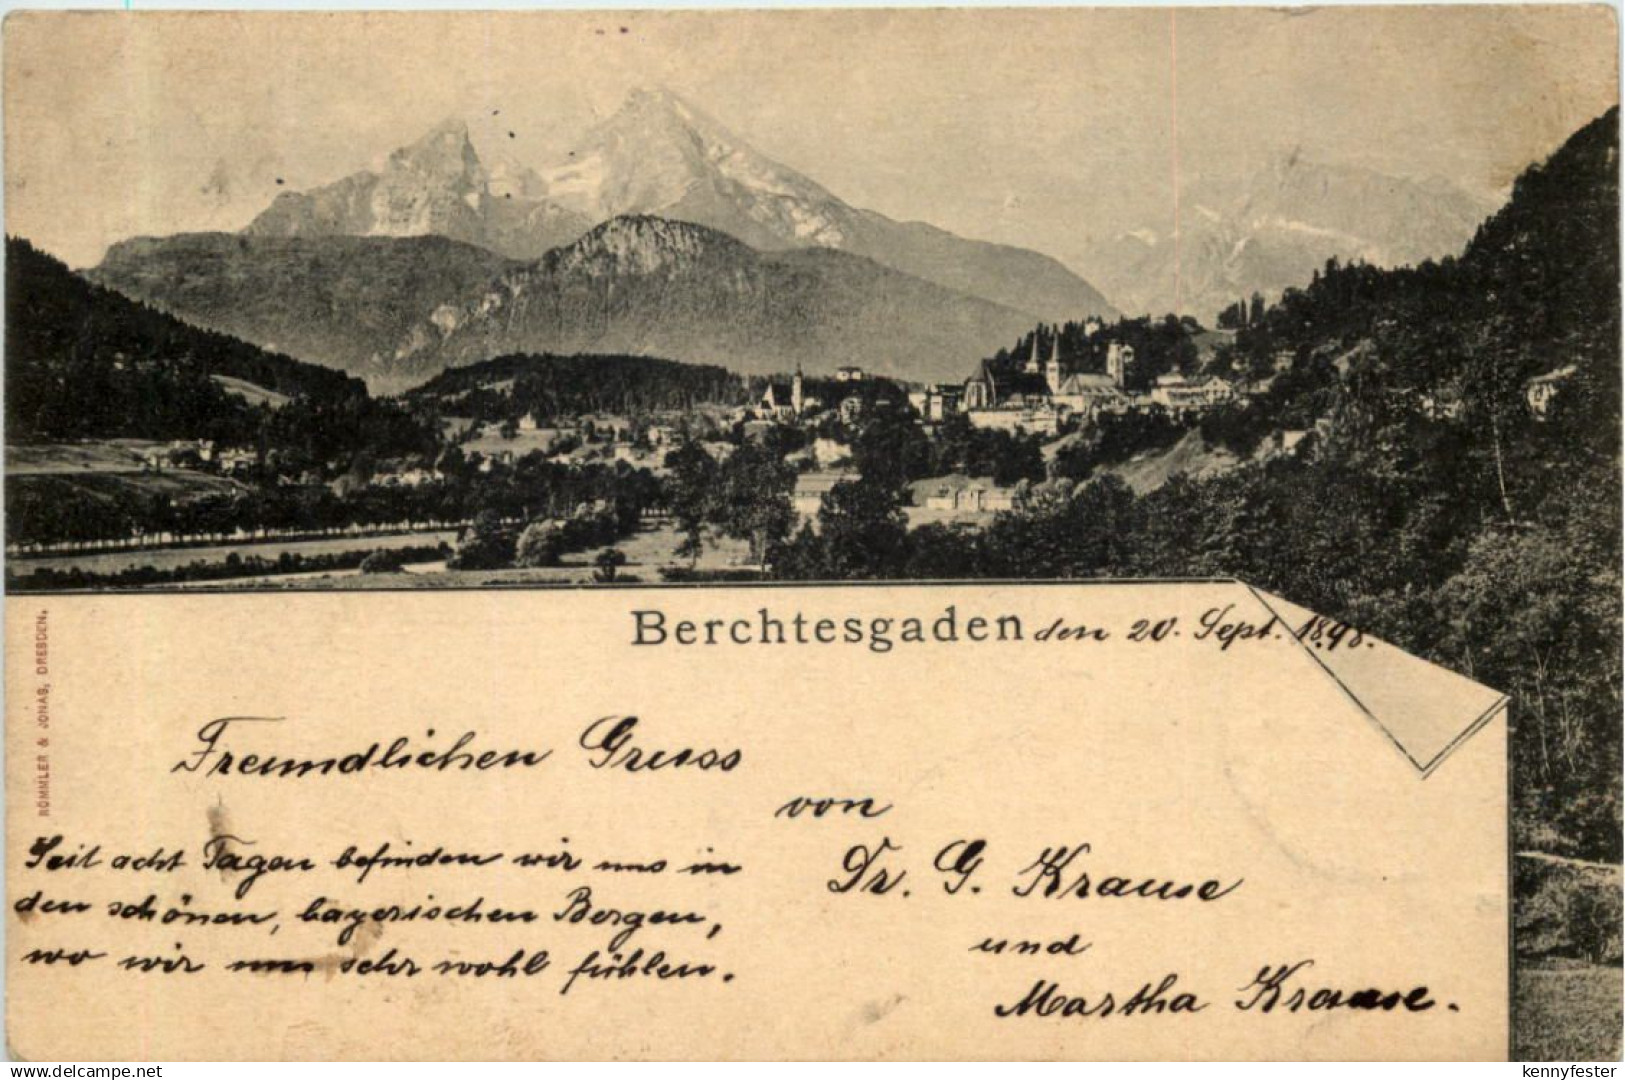 Berchtesgaden den 20. Sept. 1898.
RÖMMLER & JONAS, DRESDEN.
Freundlichen Gruss
von
Dr. G. Krause
und
Martha Krause.
Seit acht Tagen befinden wir uns in
den schönen, bayerischen Bergen,
wo wir uns sehr wohl fühlen.
www.delcampe.net
kennyfester